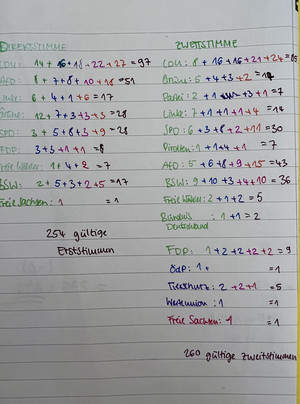 DIREKTSTIMME
CDU: 14 + 16 + 18 + 22 + 27 = 97
AfD: 8 + 7 + 8 + 10 + 18 = 51
Linke: 6 + 4 + 1 + 6 = 17
Grüne: 12 + 7 + 3 + 3 + 3 = 28
SPD: 3 + 5 + 8 + 3 + 9 = 28
FDP: 3 + 3 + 1 + 1 = 8
Freie Wähler: 1 + 4 + 2 = 7
BSW: 2 + 5 + 3 + 2 + 5 = 17
Freie Sachsen: 1 = 1
254 gültige
Erststimmen
ZWEITSTIMME
CDU: 8 + 16 + 16 + 21 + 24 = 85
Grüne: 5 + 4 + 3 + 2 = 14
Partei: 2 + 1 + 3 + 1 = 7
Linke: 7 + 1 + 1 + 1 + 4 = 14
SPD: 6 + 3 + 8 + 2 + 11 = 30
Piraten: 1 + 1 + 4 + 1 = 7
AfD: 5 + 6 + 8 + 9 + 15 = 43
BSW: 9 + 10 + 3 + 4 + 10 = 36
Freie Wähler: 2 + 1 + 2 = 5
Bündnis 1 + 1 = 2
Deutschland
FDP: 1 + 2 + 2 + 2 + 2 = 9
ÖdP: 1 = 1
Tierschutz: 2 + 2 + 1 = 5
Werteunion: 1 = 1
Freie Sachsen: 1 = 1
260 gültige Zweitstimmen